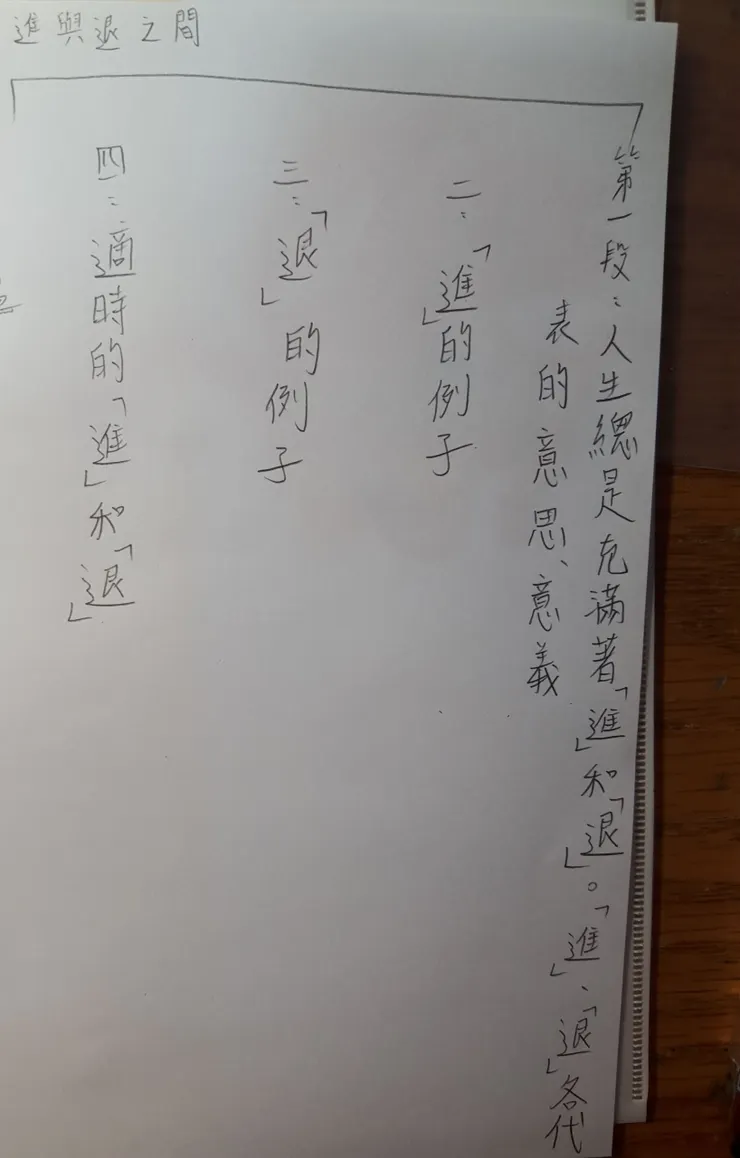 進與退之間
第一段：人生總是充滿著「進」和「退」。「進」、「退」各代
表的意思、意義
二：「進」的例子
三：「退」的例子
四：適時的「進」和「退」